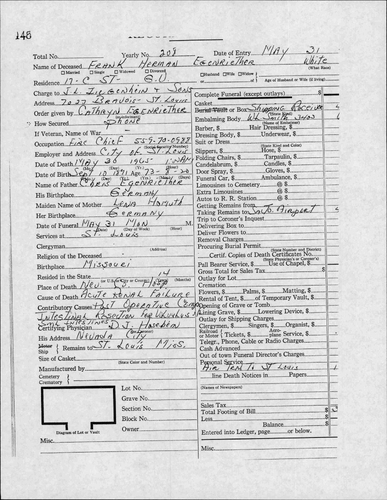 148
Total No. Yearly No. 208 Date of Entry MAY 31
Name of Deceased FRANK HERMAN EGENRIETHER White
(What Race)
Married Single Widowed Divorced Husband Wife Widow
Residence 17- C ST- G.V. Age of Husband or Wife (if living)
Charge to J L ZIEGENHEIN & SONS
Address 7027 GRAVOIS- ST LOUIS
Order Given by CATHRYN EGENRIETHER
How Secured Phone
If Veteran, Name of War
Occupation FIRE CHIEF 559-70-0988
Employer and Address CITY OF ST LOUIS
Date of Death MAY 30 1965
Date of Birth Sept 10 1891 73-8-20
Name of Father CHRIS EGENRIETHER
His Birthplace GERMANY
Maiden Name of Mother LENA
Her Birthplace GERMANY
Date of Funeral MAY 31 MON
Services at ST. LOUIS
Clergyman
Religion of the Deceased
Birthplace MISSOURI
Resided in the State 14
Place of Death NEV ST Hosp
Cause of Death ACUTE RENAL FAILURE
Contributory Causes POST OPERATIVE
INTESTINAL RESECTION FOR VOLVULUS
SML INTESTINES
Certifying Physician D J
His Address NEVADA CITY
Motor Ship Remains to ST. LOUIS MIS.
Size of Casket
(State Color and Number)
Manufactured by
Cemetery
Crematory
Lot No.
Grave No.
Section No.
Block No.
Owner
Diagram of Lot or Vault
Misc.
Complete Funeral (except outlays) $
Casket
Burial Vault or Box SHIPPING
Embalming Body
(Name of Embalmer)
Barber, $ Hair Dressing, $
Dressing Body, $ Underwear, $
Suit or Dress
(State Kind and Color)
Slippers, $ Hose, $
Folding Chairs, $ Tarpaulin, $
Candelabrum, $ Candles, $
Door Spray, $ Gloves, $
Funeral Car, $ Ambulance, $
Limousines to Cemetery @ $
Extra Limousines @ $
Autos to R. R. Station @ $
Getting Remains from
Taking Remains to AIRPORT
Trip to Coroner's Inquest
Delivering Box to
Deliver Flowers to
Removal Charges
Procuring Burial Permit
(State Number and District)
Certif. Copies of Death Certificates No.
Pall Bearer Service, $ Use of Chapel, $
Gross Total for Sales Tax $
Outlay for Lot
Cremation
Flowers, $ Palms, $ Matting, $
Rental of Tent, $ of Temporary Vault, $
Opening of Grave or Tomb
Lining Grave, $ Lowering Device, $
Outlay for Shipping Charges
Clergymen, $ Singers, $ Organist, $
Railroad or Motor Tickets, $ Aeroplane Service, $
Telegr., Phone, Cable or Radio Charges
Cash Advanced
Out of town Funeral Director's Charges
Personal Service
AIR TO ST LOUIS
line Death Notices in Papers
(Names of Newspapers)
Sales Tax
Total Footing of Bill $
Less
Balance
Entered into Ledger, page or below.
Misc.